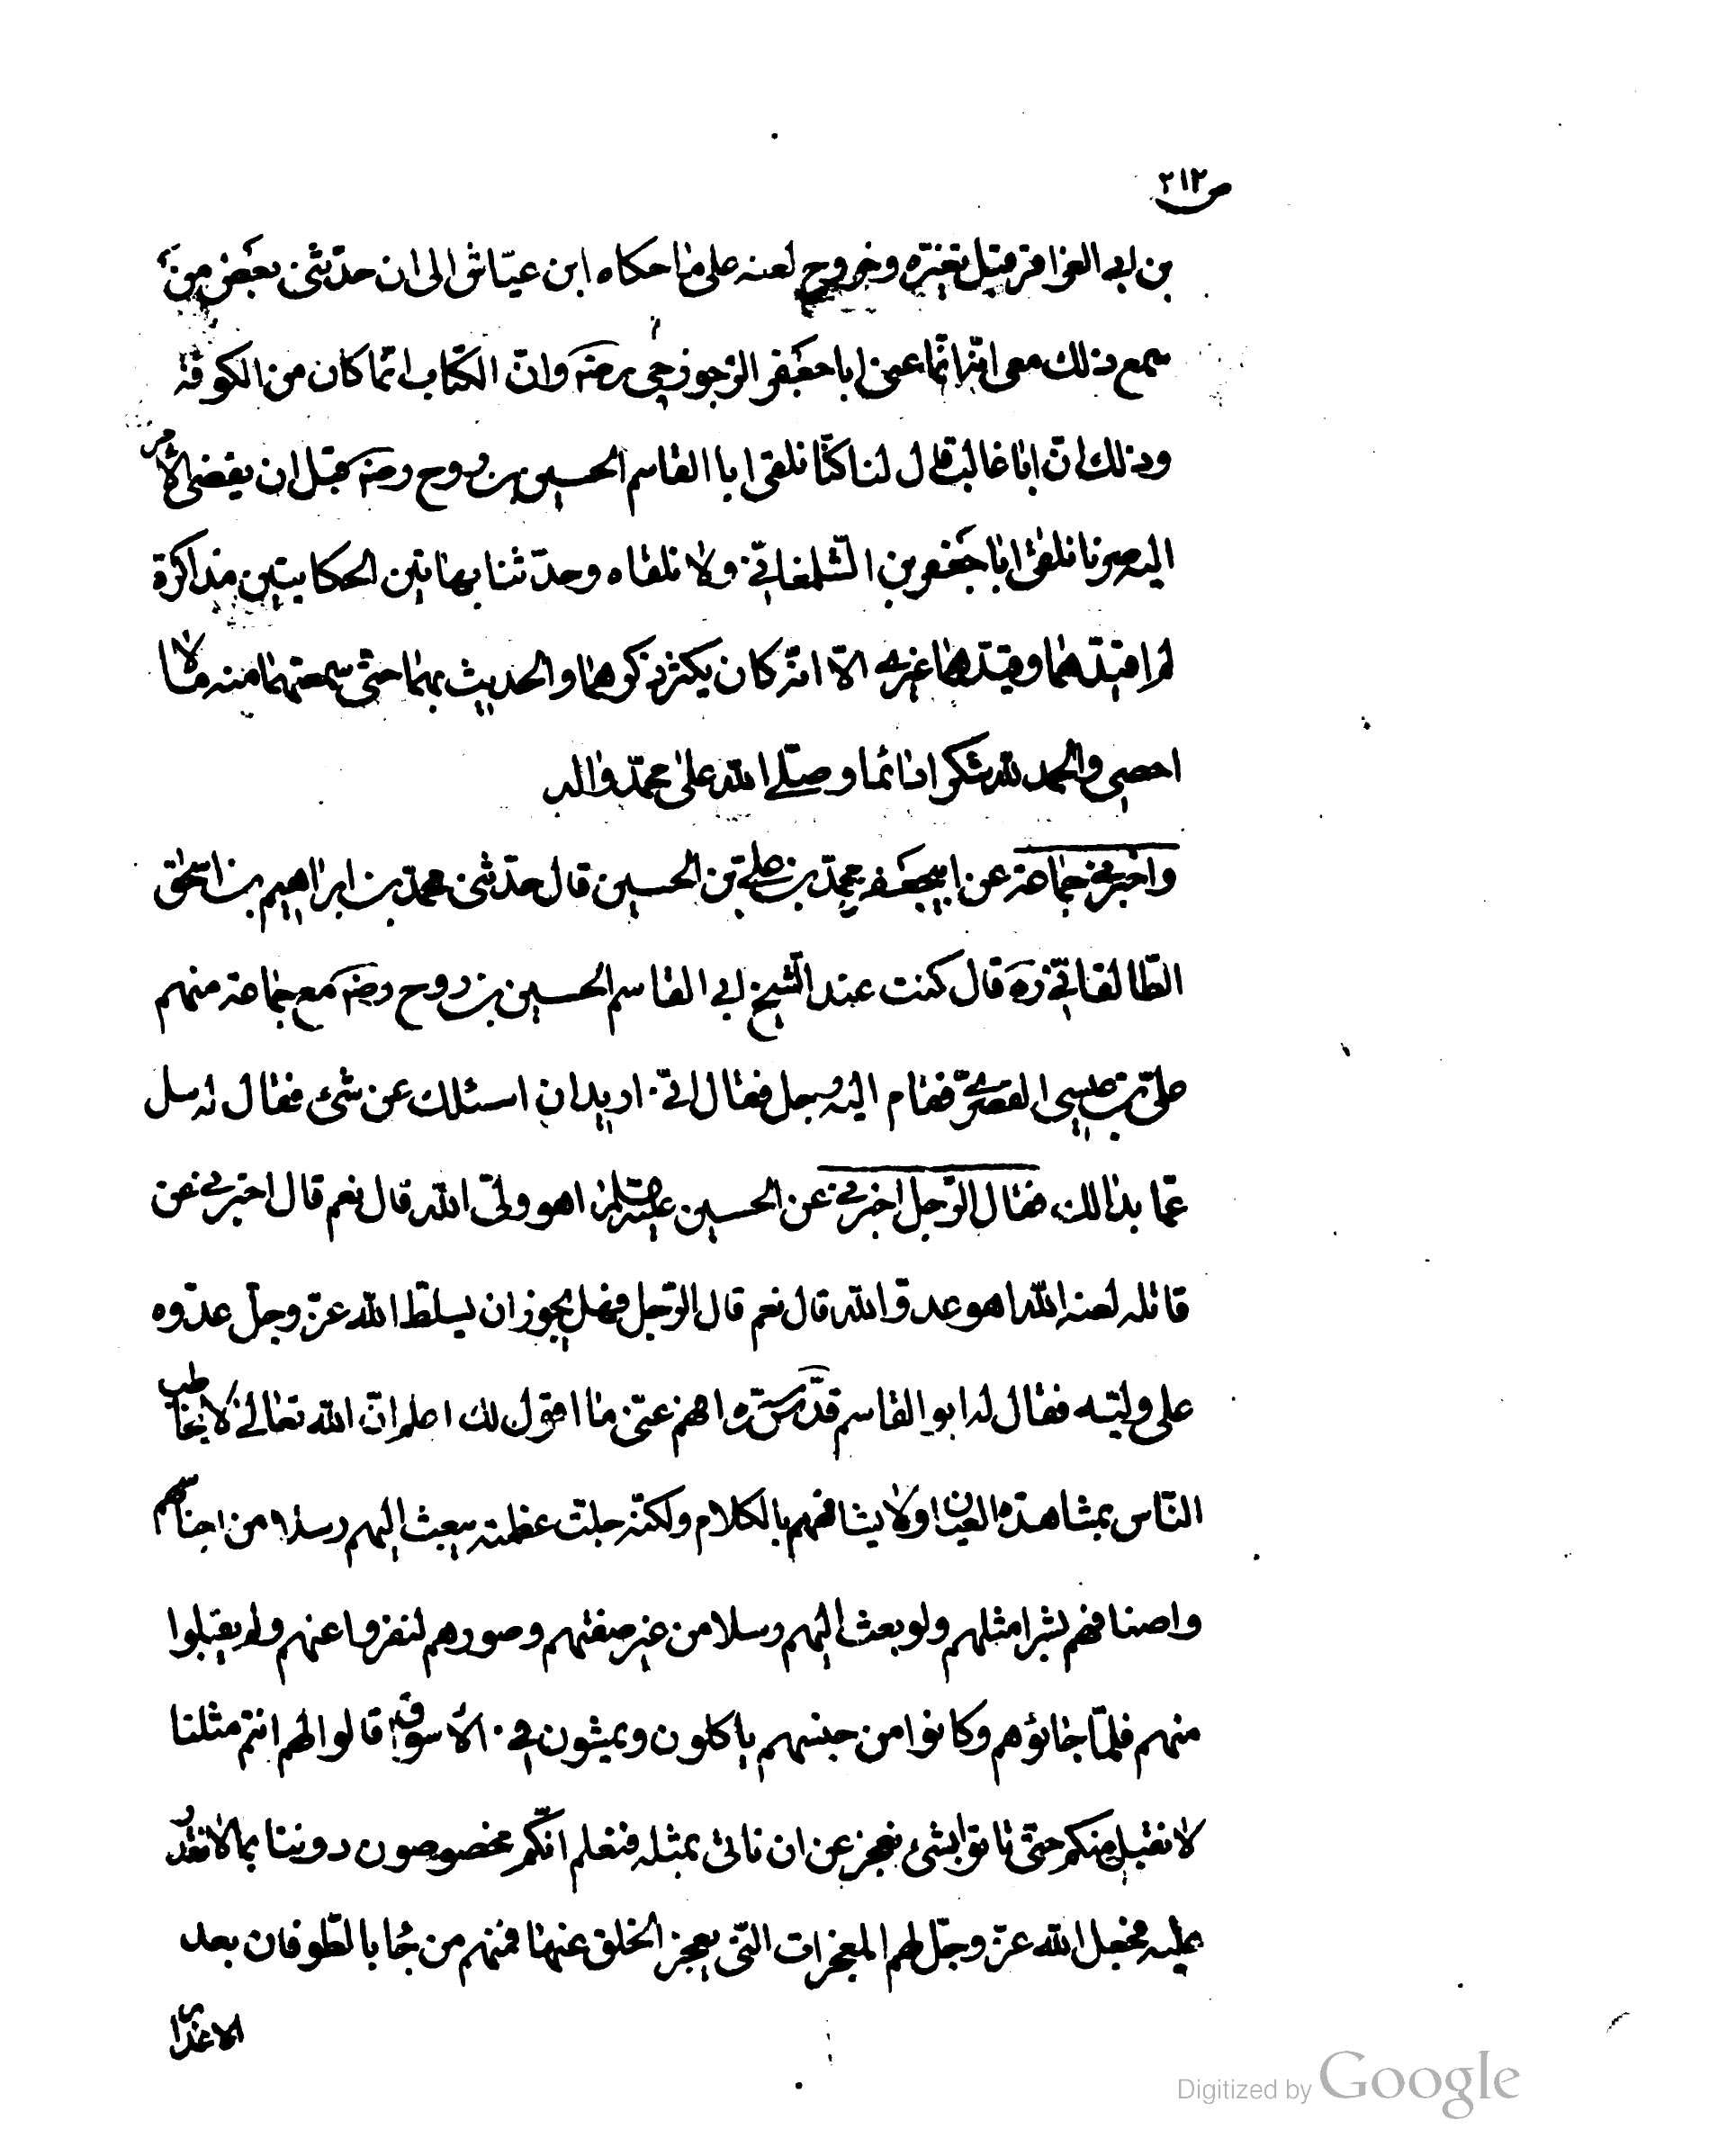 ص ٢١٢
بن ابى العزاقر قبل تغيّره وخروج لعنه على ما حكاه ابن عيّاش الى ان حدّثنى بعض من
سمع ذلك معى انّه انّما عنى ابا جعفر الزجوزجى رضه وانّ الكتاب انّما كان من الكوفة
وذلك انّ ابا غالب قال لنا كنّا نلقى ابا القاسم الحسين بن روح رضه قبل ان يفضى الأمر
اليه صرنا نلقى ابا جعفر بن الشلمغانى ولا نلقاه وحدّثنا بهاتين الحكايتين مذاكرة
لم اقيّدهما وقيّدهما غيرى الّا انّه كان يكثر ذكرهما والحديث بهما حتّى سمعتهما منه ما لا
احصى والحمد لله شكرا دائما وصلّى الله على محمّد واله
واخبرنى جماعة عن ابيجعفر محمّد بن علىّ بن الحسين قال حدّثنى محمّد بن ابراهيم بن اسحق
الطّالقانى ره قال كنت عند الشّيخ ابى القاسم الحسين بن روح رضه مع جماعة منهم
علىّ بن عيسى القصرىّ فقام اليه رجل فقال انّى اريد ان اسئلك عن شئ فقال له سل
عمّا بدالك فقال الرّجل اخبرنى عن الحسين عليه السّلام اهو ولىّ الله قال نعم قال اخبرنى عن
قاتله لعنه الله اهو عدوّ الله قال نعم قال الرّجل فهل يجوز ان يسلّط الله عزّ وجلّ عدوّه
على وليّه فقال له ابو القاسم قدّس سرّه افهم عنّى ما اقول لك اعلم انّ الله تعالى لا يخاطب
النّاس بمشاهدة العيان ولا يشافههم بالكلام ولكنّه جلت عظمته يبعث اليهم رسلا من اجناسهم
واصنافهم بشرا مثلهم ولو بعث اليهم رسلا من غير صفتهم وصورهم لنفروا عنهم ولم يقبلوا
منهم فلمّا جاؤهم وكانوا من جنسهم ياكلون ويمشون فى الأسواق قالوا لهم انتم مثلنا
لا نقبل منكم حتّى تاتوا بشئ نعجز عن ان ناتى بمثله فنعلم انّكم مخصوصون دوننا بما لا نقدر
عليه فجعل الله عزّ وجلّ لهم المعجزات الّتى يعجز الخلق عنها فمنهم من جا بالطّوفان بعد
الاعذار
Digitized by Google